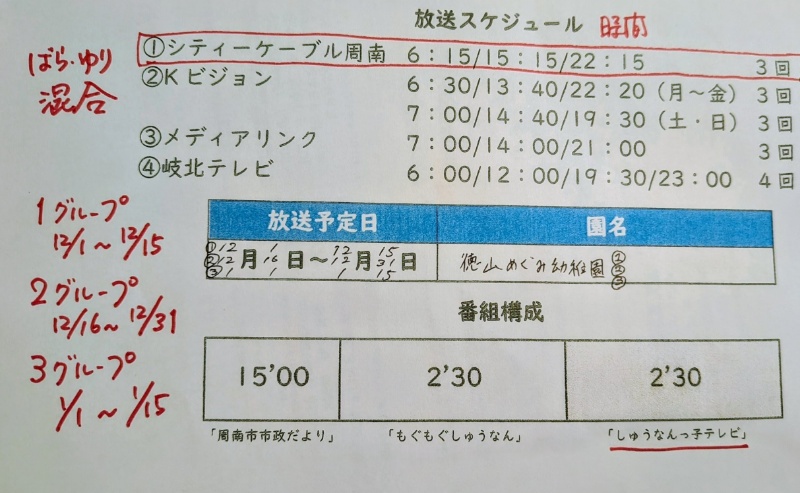 放送スケジュール 時間
ばら・ゆり
混合
①シティーケーブル周南 6:15/15:15/22:15 3回
②Kビジョン 6:30/13:40/22:20(月～金) 3回
7:00/14:40/19:30(土・日) 3回
③メディアリンク 7:00/14:00/21:00 3回
④岐北テレビ 6:00/12:00/19:30/23:00 4回
1グループ
12/1～12/15
2グループ
12/16～12/31
3グループ
1/1～1/15
放送予定日 園名
①12 1 12 15
②12月16日～12月31日 徳山めぐみ幼稚園①②③
③1 1 1 15
番組構成
15'00 2'30 2'30
「周南市市政だより」 「もぐもぐしゅうなん」 「しゅうなんっ子テレビ」